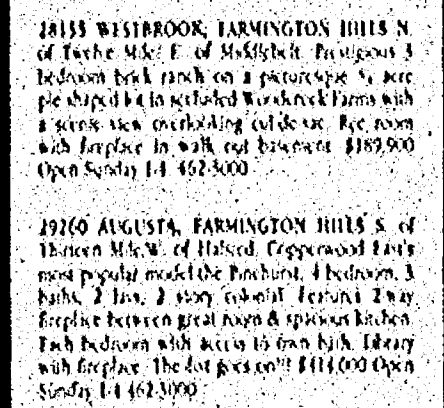 28155 WESTBROOK, FARMINGTON HILLS N.
of Twelve Mile, E. of Middlebelt. Prestigious 3
bedroom brick ranch on a picturesque acre
pie shaped lot in secluded Woodcreek Farms with
a scenic view overlooking cul de sac. Rec room
with fireplace in walk out basement. $189,900
Open Sunday 1-4 462-3000
29260 AUGUSTA, FARMINGTON HILLS S. of
Thirteen Mile, W. of Halsted. Copperwood East's
most popular model the Pinehurst, 4 bedroom, 3
baths, 2 lavs, 2 story colonial. Features 2 way
fireplace between great room & spacious kitchen.
Each bedroom with access to own bath. Library
with fireplace. The list goes on!!! $414,000 Open
Sunday 1-4 462-3000